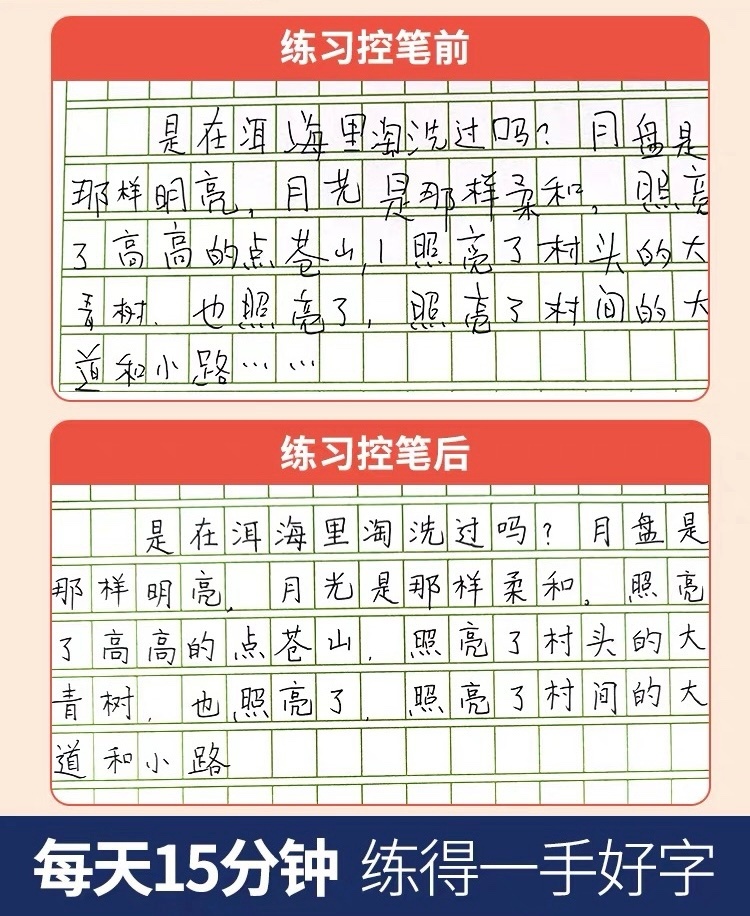 练习控笔前
是在洱海里淘洗过吗？月盘是
那样明亮，月光是那样柔和，照亮
了高高的点苍山，照亮了村头的大
青树，也照亮了，照亮了村间的大
道和小路……
练习控笔后
是在洱海里淘洗过吗？月盘是
那样明亮，月光是那样柔和。照亮
了高高的点苍山，照亮了村头的大
青树，也照亮了，照亮了村间的大
道和小路
每天15分钟 练得一手好字